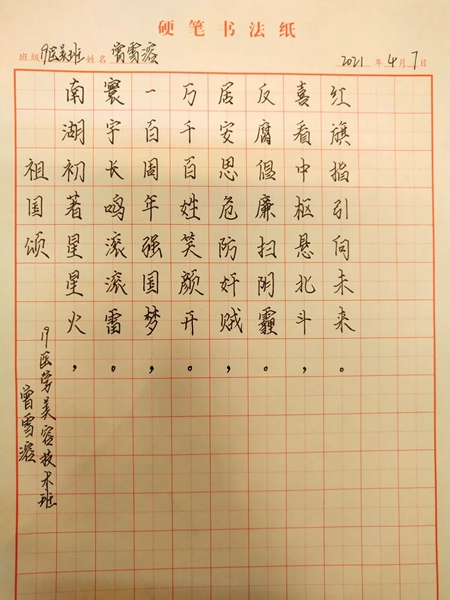 硬笔书法纸
班级 19医美班 姓名 曾雪溶 2021年4月7日
祖国颂
南湖初著星星火，
寰宇长鸣滚滚雷。
一百周年强国梦，
万千百姓笑颜开。
居安思危防奸贼，
反腐倡廉扫阴霾。
喜看中枢悬北斗，
红旗指引向未来。
19医学美容技术班
曾雪溶